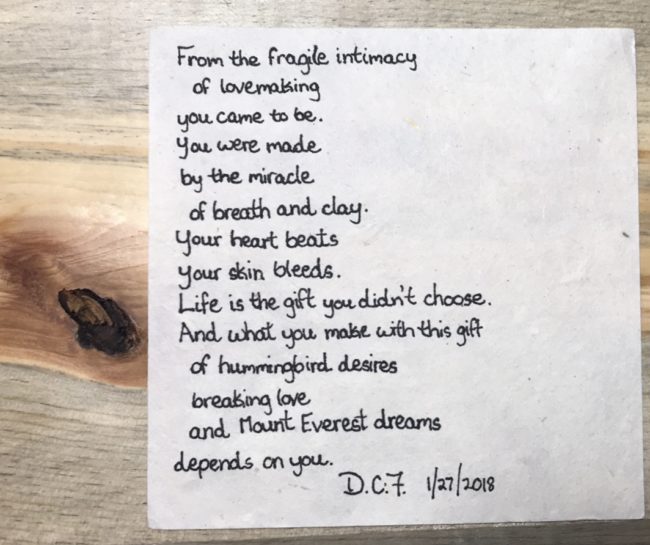 From the fragile intimacy
of lovemaking
you came to be.
You were made
by the miracle
of breath and clay.
Your heart beats
your skin bleeds.
Life is the gift you didn't choose.
And what you make with this gift
of hummingbird desires
breaking love
and Mount Everest dreams
depends on you.
D.C.F. 1/27/2018